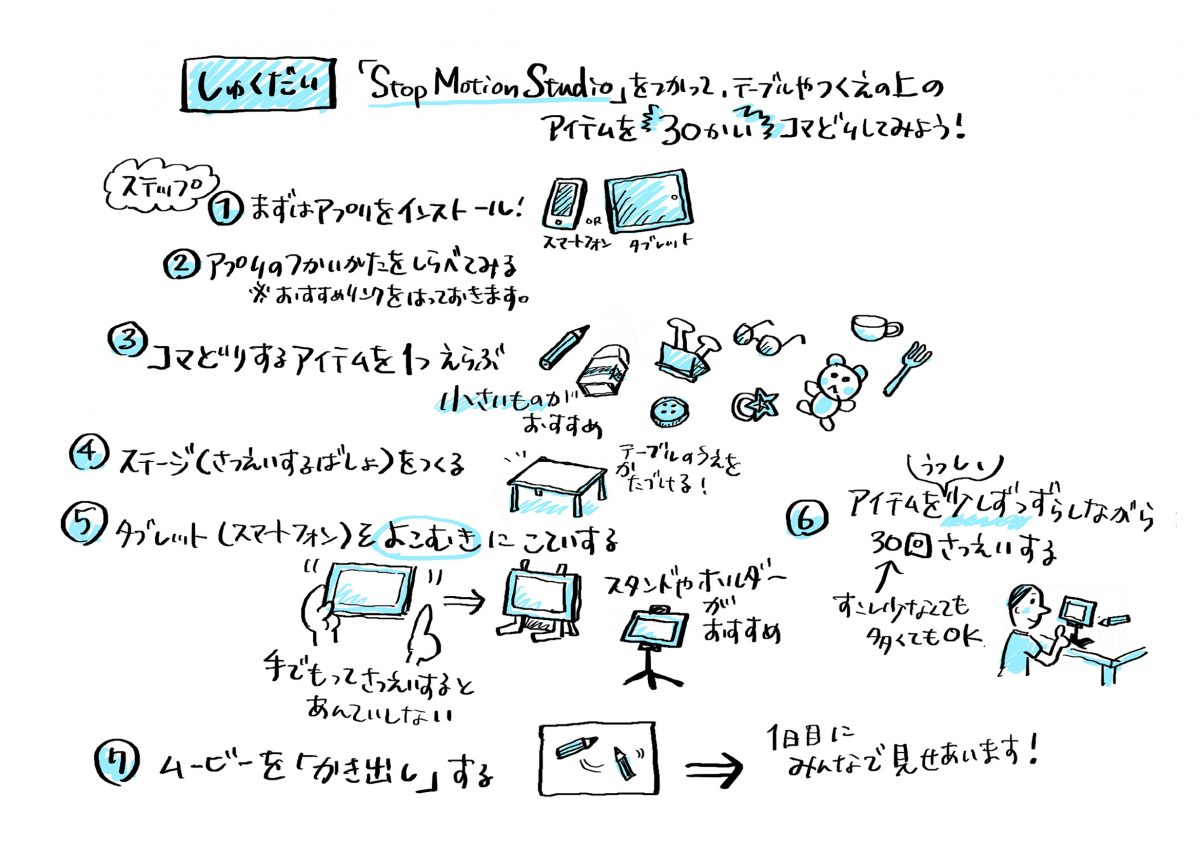 しゅくだい 「Stop Motion Studio」をつかって、テーブルやつくえの上の
アイテムを30かいコマどりしてみよう!
ステップ
① まずはアプリをインストール!
OR
スマートフォン タブレット
② アプリのつかいかたをしらべてみる
※おすすめリンクをはっておきます。
③ コマどりするアイテムを1つえらぶ
小さいものが
おすすめ
④ ステージ(さつえいするばしょ)をつくる
テーブルのうえを
かたづける!
⑤ タブレット(スマートフォン)をよこむきにこていする
手でもってさつえいすると
あんていしない
スタンドやホルダー
が
おすすめ
⑥ アイテムを少しずつずらしながら
30回さつえいする
すこし少なくても
多くてもOK
⑦ ムービーを「かき出し」する
1日目に
みんなで見せあいます!